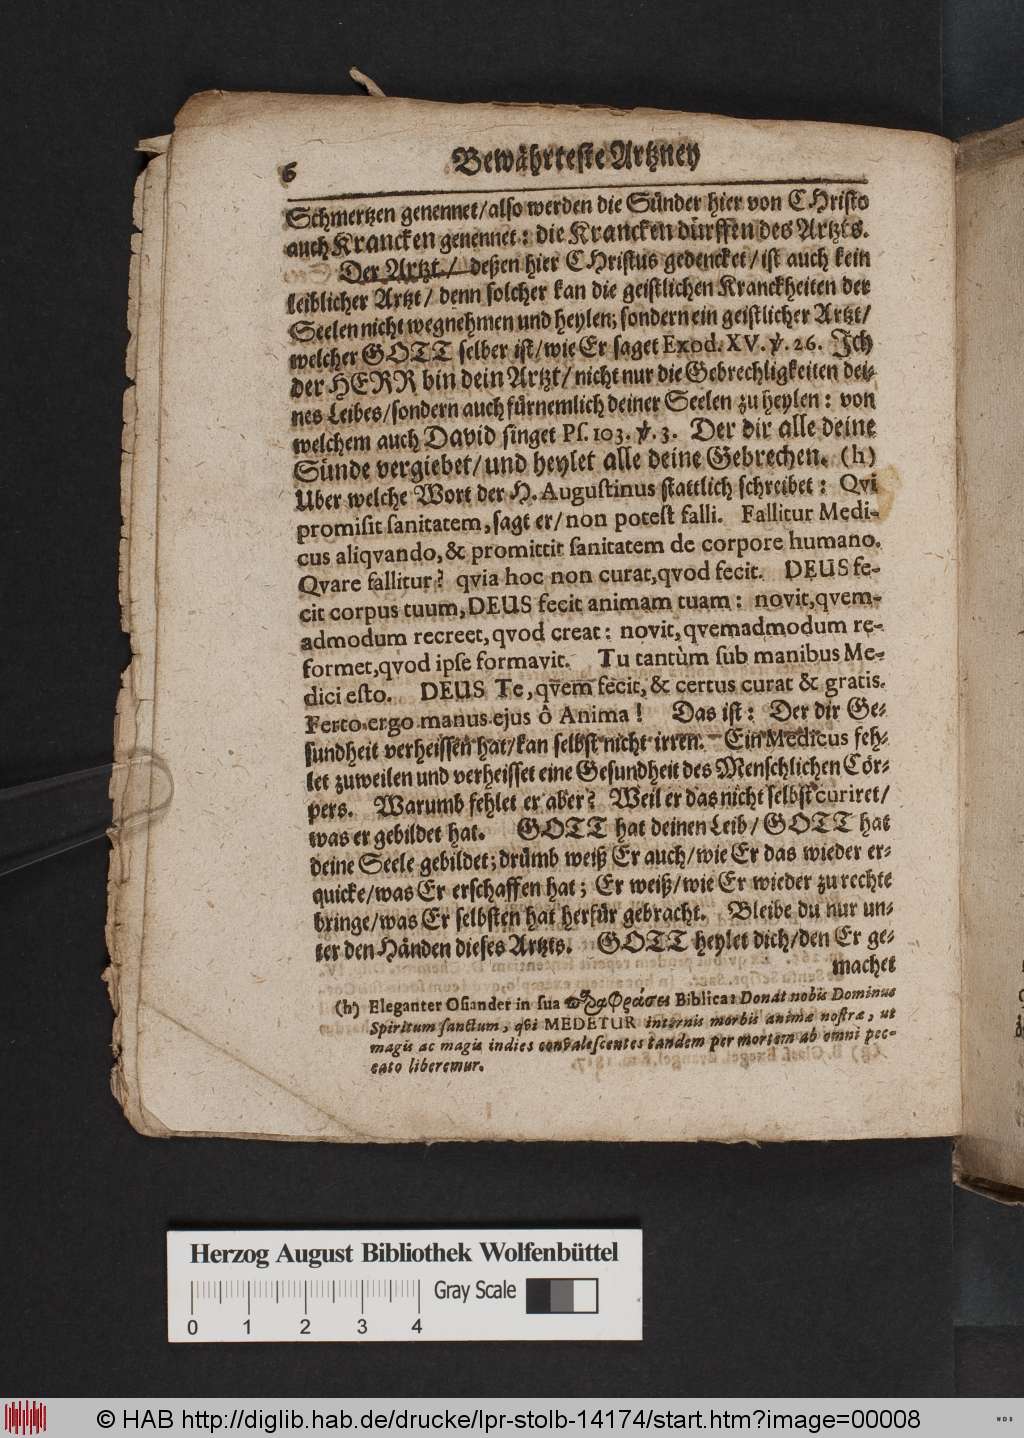 6 Bewährteste Artzney
Schmertzen genennet/also werden die Sünder hier von CHristo
auch Krancken genennet: die Krancken dürffen des Artzts.
Der Artzt/ deßen hier CHristus gedencket/ist auch kein
leiblicher Artzt/ denn solcher kan die geistlichen Kranckheiten der
Seelen nicht wegnehmen und heylen; sondern ein geistlicher Artzt/
welcher GOTT selber ist/wie Er saget Exod. XV. ℣. 26. Jch
der HERR bin dein Artzt/nicht nur die Gebrechligkeiten dei-
nes Leibes/sondern auch fürnemlich deiner Seelen zu heylen: von
welchem auch David singet Ps. 103. ℣. 3. Der dir alle deine
Sünde vergiebet/und heylet alle deine Gebrechen. (h)
Uber welche Wort der H. Augustinus stattlich schreibet: Qvi
promisit sanitatem, sagt er/non potest falli. Fallitur Medi-
cus aliqvando, & promittit sanitatem de corpore humano.
Qvare fallitur? qvia hoc non curat, qvod fecit. DEUS fe-
cit corpus tuum, DEUS fecit animam tuam: novit, qvem-
admodum recreet, qvod creat: novit, qvemadmodum re-
formet, qvod ipse formavit. Tu tantùm sub manibus Me-
dici esto. DEUS Te, qvem fecit, & certus curat & gratis.
Ferto ergo manus ejus ô Anima! Das ist: Der dir Ge-
sundheit verheissen hat/kan selbst nicht irren. Ein Medicus feh-
let zuweilen und verheisset eine Gesundheit des Menschlichen Cör-
pers. Warumb fehlet er aber? Weil er das nicht selbst curiret/
was er gebildet hat. GOTT hat deinen Leib/ GOTT hat
deine Seele gebildet; drümb weiß Er auch/wie Er das wieder er-
quicke/was Er erschaffen hat; Er weiß/wie Er wieder zu rechte
bringe/was Er selbsten hat herfür gebracht. Bleibe du nur un-
ter den Händen dieses Artzts. GOTT heylet dich/den Er ge-
machet
(h) Eleganter Osiander in sua παραφράσει Biblica: Donat nobis Dominus
Spiritum sanctum, qvi MEDETUR internis morbis animæ nostræ, ut
magis ac magis indies convalescentes tandem per mortem ab omni pec-
cato liberemur.
Herzog August Bibliothek Wolfenbüttel
Gray Scale
0 1 2 3 4
© HAB http://diglib.hab.de/drucke/lpr-stolb-14174/start.htm?image=00008